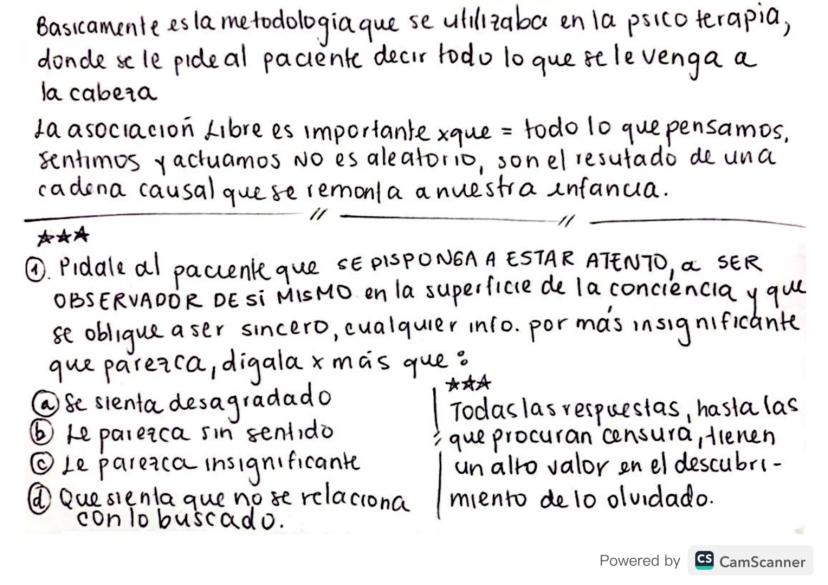 Basicamente es la metodología que se utilizaba en la psicoterapia,
donde se le pide al paciente decir todo lo que se le venga a
la cabeza
La asociación Libre es importante xque = todo lo que pensamos,
sentimos y actuamos NO es aleatorio, son el resutado de una
cadena causal que se remonta a nuestra infancia.
★★★
①. Pidale al paciente que SE DISPONGA A ESTAR ATENTO, a SER
OBSERVADOR DE SÍ MISMO en la superficie de la conciencia y que
se obligue a ser sincero, cualquier info. por más insignificante
que parezca, dígala x más que:
ⓐ Se sienta desagradado
ⓑ Le parezca sin sentido
ⓒ Le parezca insignificante
ⓓ Que sienta que no se relaciona
con lo buscado.
★★★
Todas las respuestas, hasta las
que procuran censura, tienen
un alto valor en el descubri-
miento de lo olvidado.
Powered by CS CamScanner